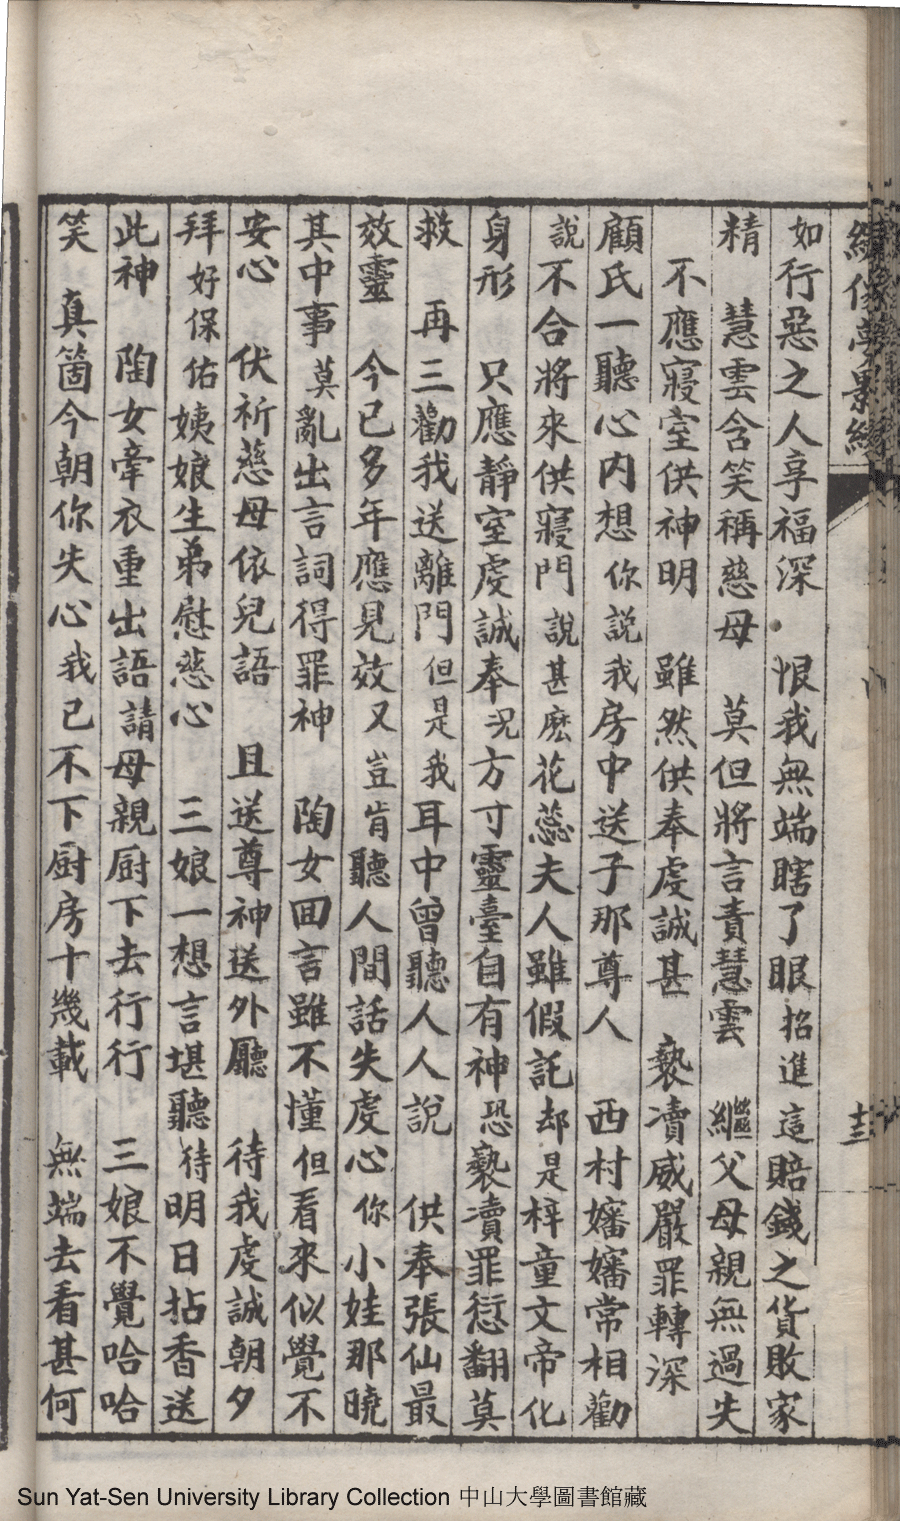 如行惡之人享福深 恨我無端瞎了眼 招進這賠錢之貨敗家
精 慧雲含笑稱慈母 莫但將言責慧雲 繼父母親無過失
不應寢室供神明 雖然供奉虔誠甚 褻凟威嚴罪轉深
顧氏一聽心内想 你說我房中送子那尊人 西村嬸嬸常相勸
說不合將來供寢門 說甚麽花蕊夫人雖假託 却是梓童文帝化
身形 只應靜室虔誠奉 况方寸靈臺自有神 恐褻凟罪愆翻莫
救 再三勸我送離門 但是我耳中曾聽人人說 供奉張仙最
效靈 今已多年應見效 又豈肯聽人間話失虔心 你小娃那曉
其中事 莫亂出言詞得罪神 陶女回言雖不懂 但看來似覺不
安心 伏祈慈母依兒語 且送尊神送外廳 待我虔誠朝夕
拜 好保佑姨娘生弟慰慈心 三娘一想言堪聽 待明日拈香送
此神 陶女牽衣重出語 請母親厨下去行行 三娘不覺哈哈
笑 真箇今朝你失心 我已不下厨房十幾載 無端去看甚何
夢影緣
十三
Sun Yat-Sen University Library Collection 中山大學圖書館藏